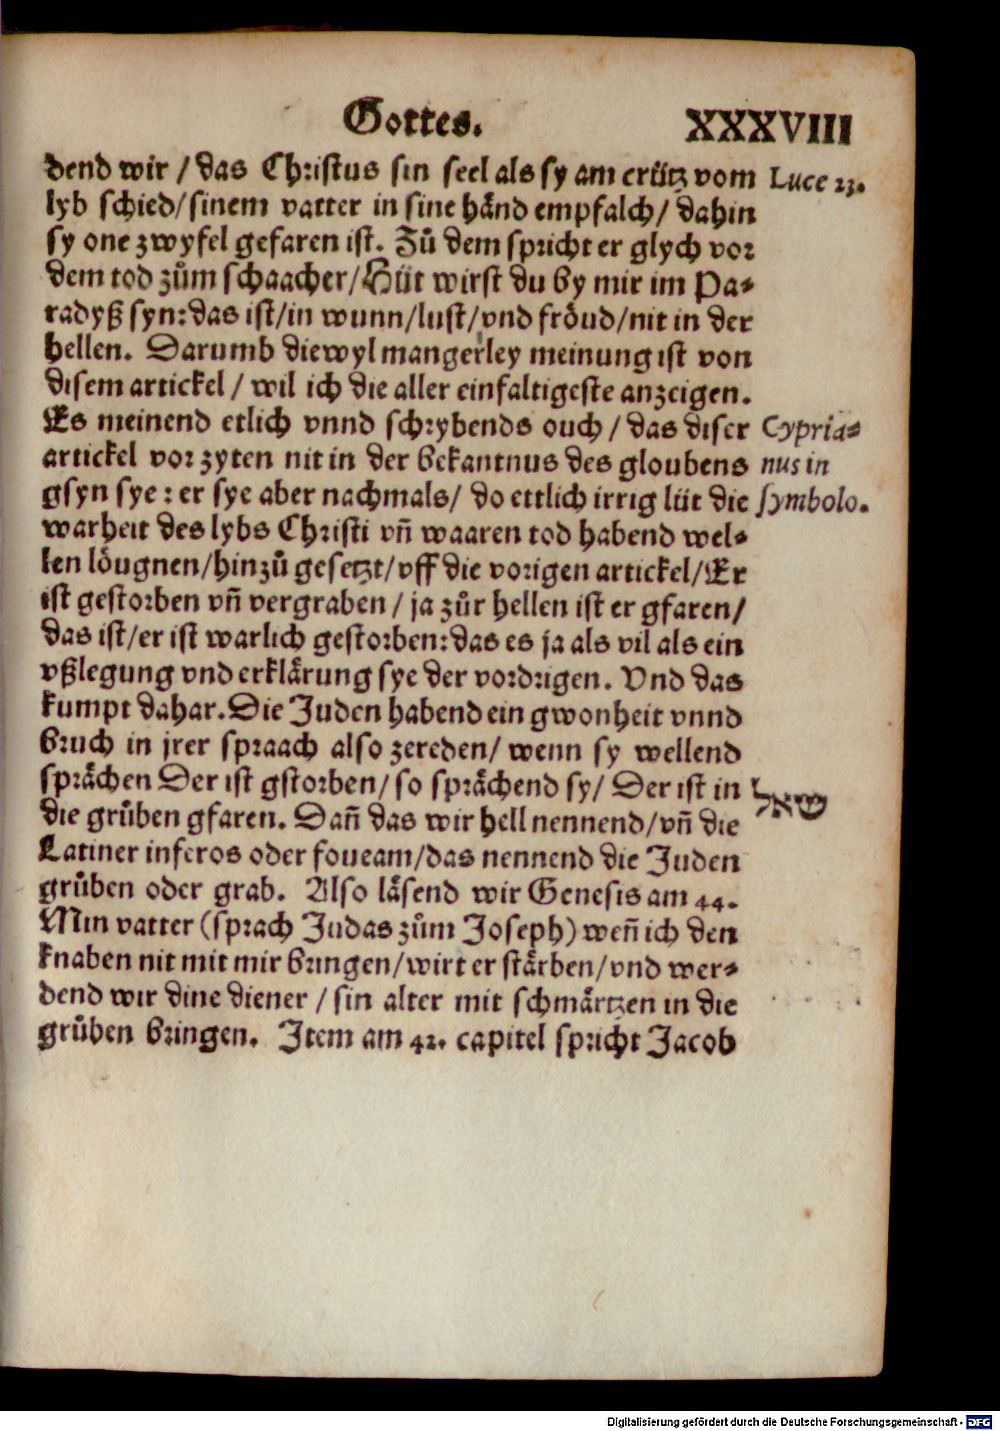 Gottes. XXXVIII
dend wir / das Christus sin seel als sy am crütz vom Luce 23.
lyb schied/sinem vatter in sine hånd empfalch/ dahin
sy one zwyfel gefaren ist. Zů dem spricht er glych vor
dem tod zům schaacher/Hüt wirst du by mir im Pa⸗
radyß syn:das ist/in wunn/lust/vnd fröud/nit in der
hellen. Darumb diewyl mangerley meinung ist von
disem artickel / wil ich die aller einfaltigeste anzeigen.
Es meinend etlich vnnd schrybends ouch / das diser Cypria⸗
artickel vor zyten nit in der bekantnus des gloubens nus in
gsyn sye : er sye aber nachmals/ do ettlich irrig lüt die symbolo.
warheit des lybs Christi vñ waaren tod habend wel⸗
len löugnen/hinzů gesetzt/vff die vorigen artickel/Er
ist gestorben vñ vergraben / ja zůr hellen ist er gfaren/
das ist/er ist warlich gestorben:das es ja als vil als ein
vßlegung vnd erklårung sye der vordrigen. Vnd das
kumpt dahar. Die Juden habend ein gwonheit vnnd
bruch in jrer spraach also zereden/ wenn sy wellend
språchen Der ist gstorben/ so språchend sy/ Der ist in שאל
die grůben gfaren. Dañ das wir hell nennend/vñ die
Latiner inferos oder foueam/das nennend die Juden
grůben oder grab. Also låsend wir Genesis am 44.
Min vatter (sprach Judas zům Joseph) weñ ich den
knaben nit mit mir bringen/wirt er stårben/vnd wer⸗
dend wir dine diener / sin alter mit schmårtzen in die
grůben bringen. Item am 42. capitel spricht Jacob
Digitalisierung gefördert durch die Deutsche Forschungsgemeinschaft - DFG